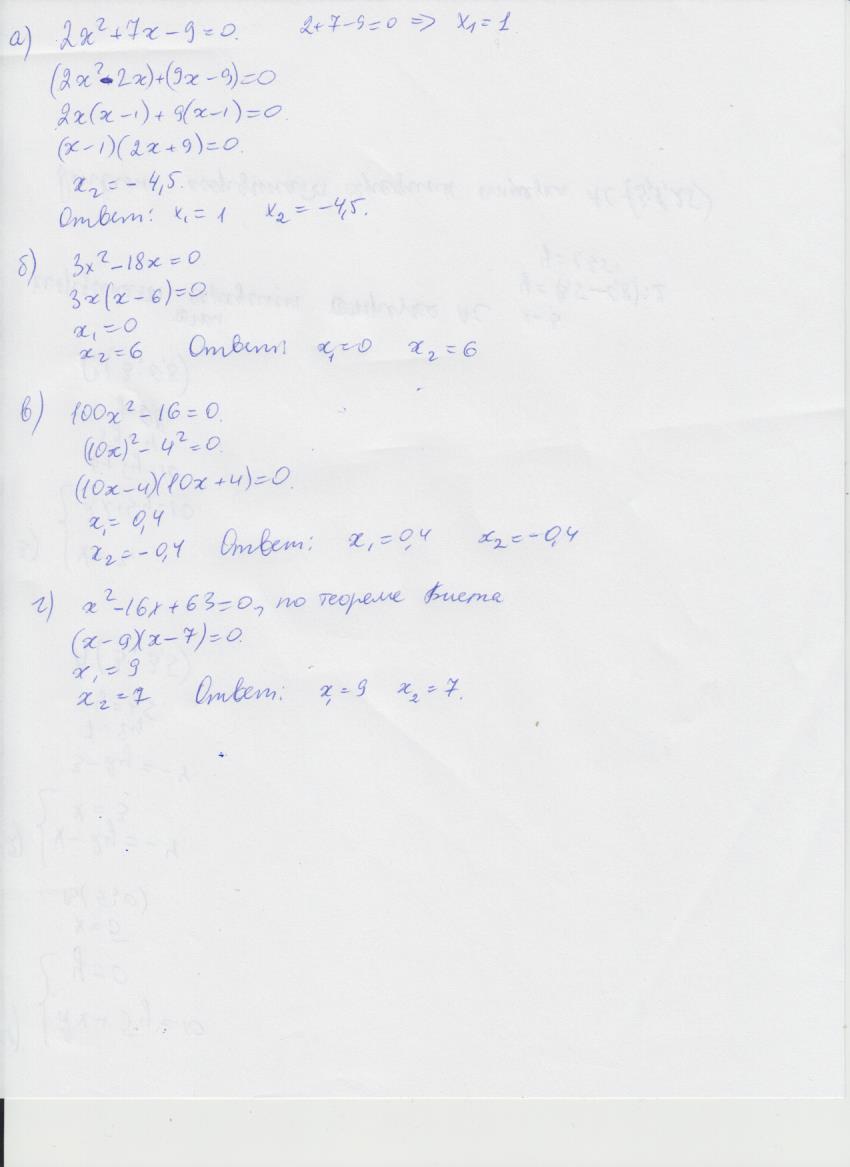 а) 2x² + 7x - 9 = 0. 2+7-9=0 => x₁ = 1
(2x² - 2x) + (9x - 9) = 0
2x(x-1) + 9(x-1) = 0.
(x-1)(2x+9) = 0.
x₂ = -4,5.
Ответ: x₁ = 1 x₂ = -4,5.
б) 3x² - 18x = 0
3x(x-6) = 0.
x₁ = 0
x₂ = 6 Ответ: x₁ = 0 x₂ = 6
в) 100x² - 16 = 0.
(10x)² - 4² = 0.
(10x-4)(10x+4) = 0.
x₁ = 0,4
x₂ = -0,4 Ответ: x₁ = 0,4 x₂ = -0,4
г) x² - 16x + 63 = 0, по теореме Виета
(x-9)(x-7) = 0.
x₁ = 9
x₂ = 7 Ответ: x₁ = 9 x₂ = 7.